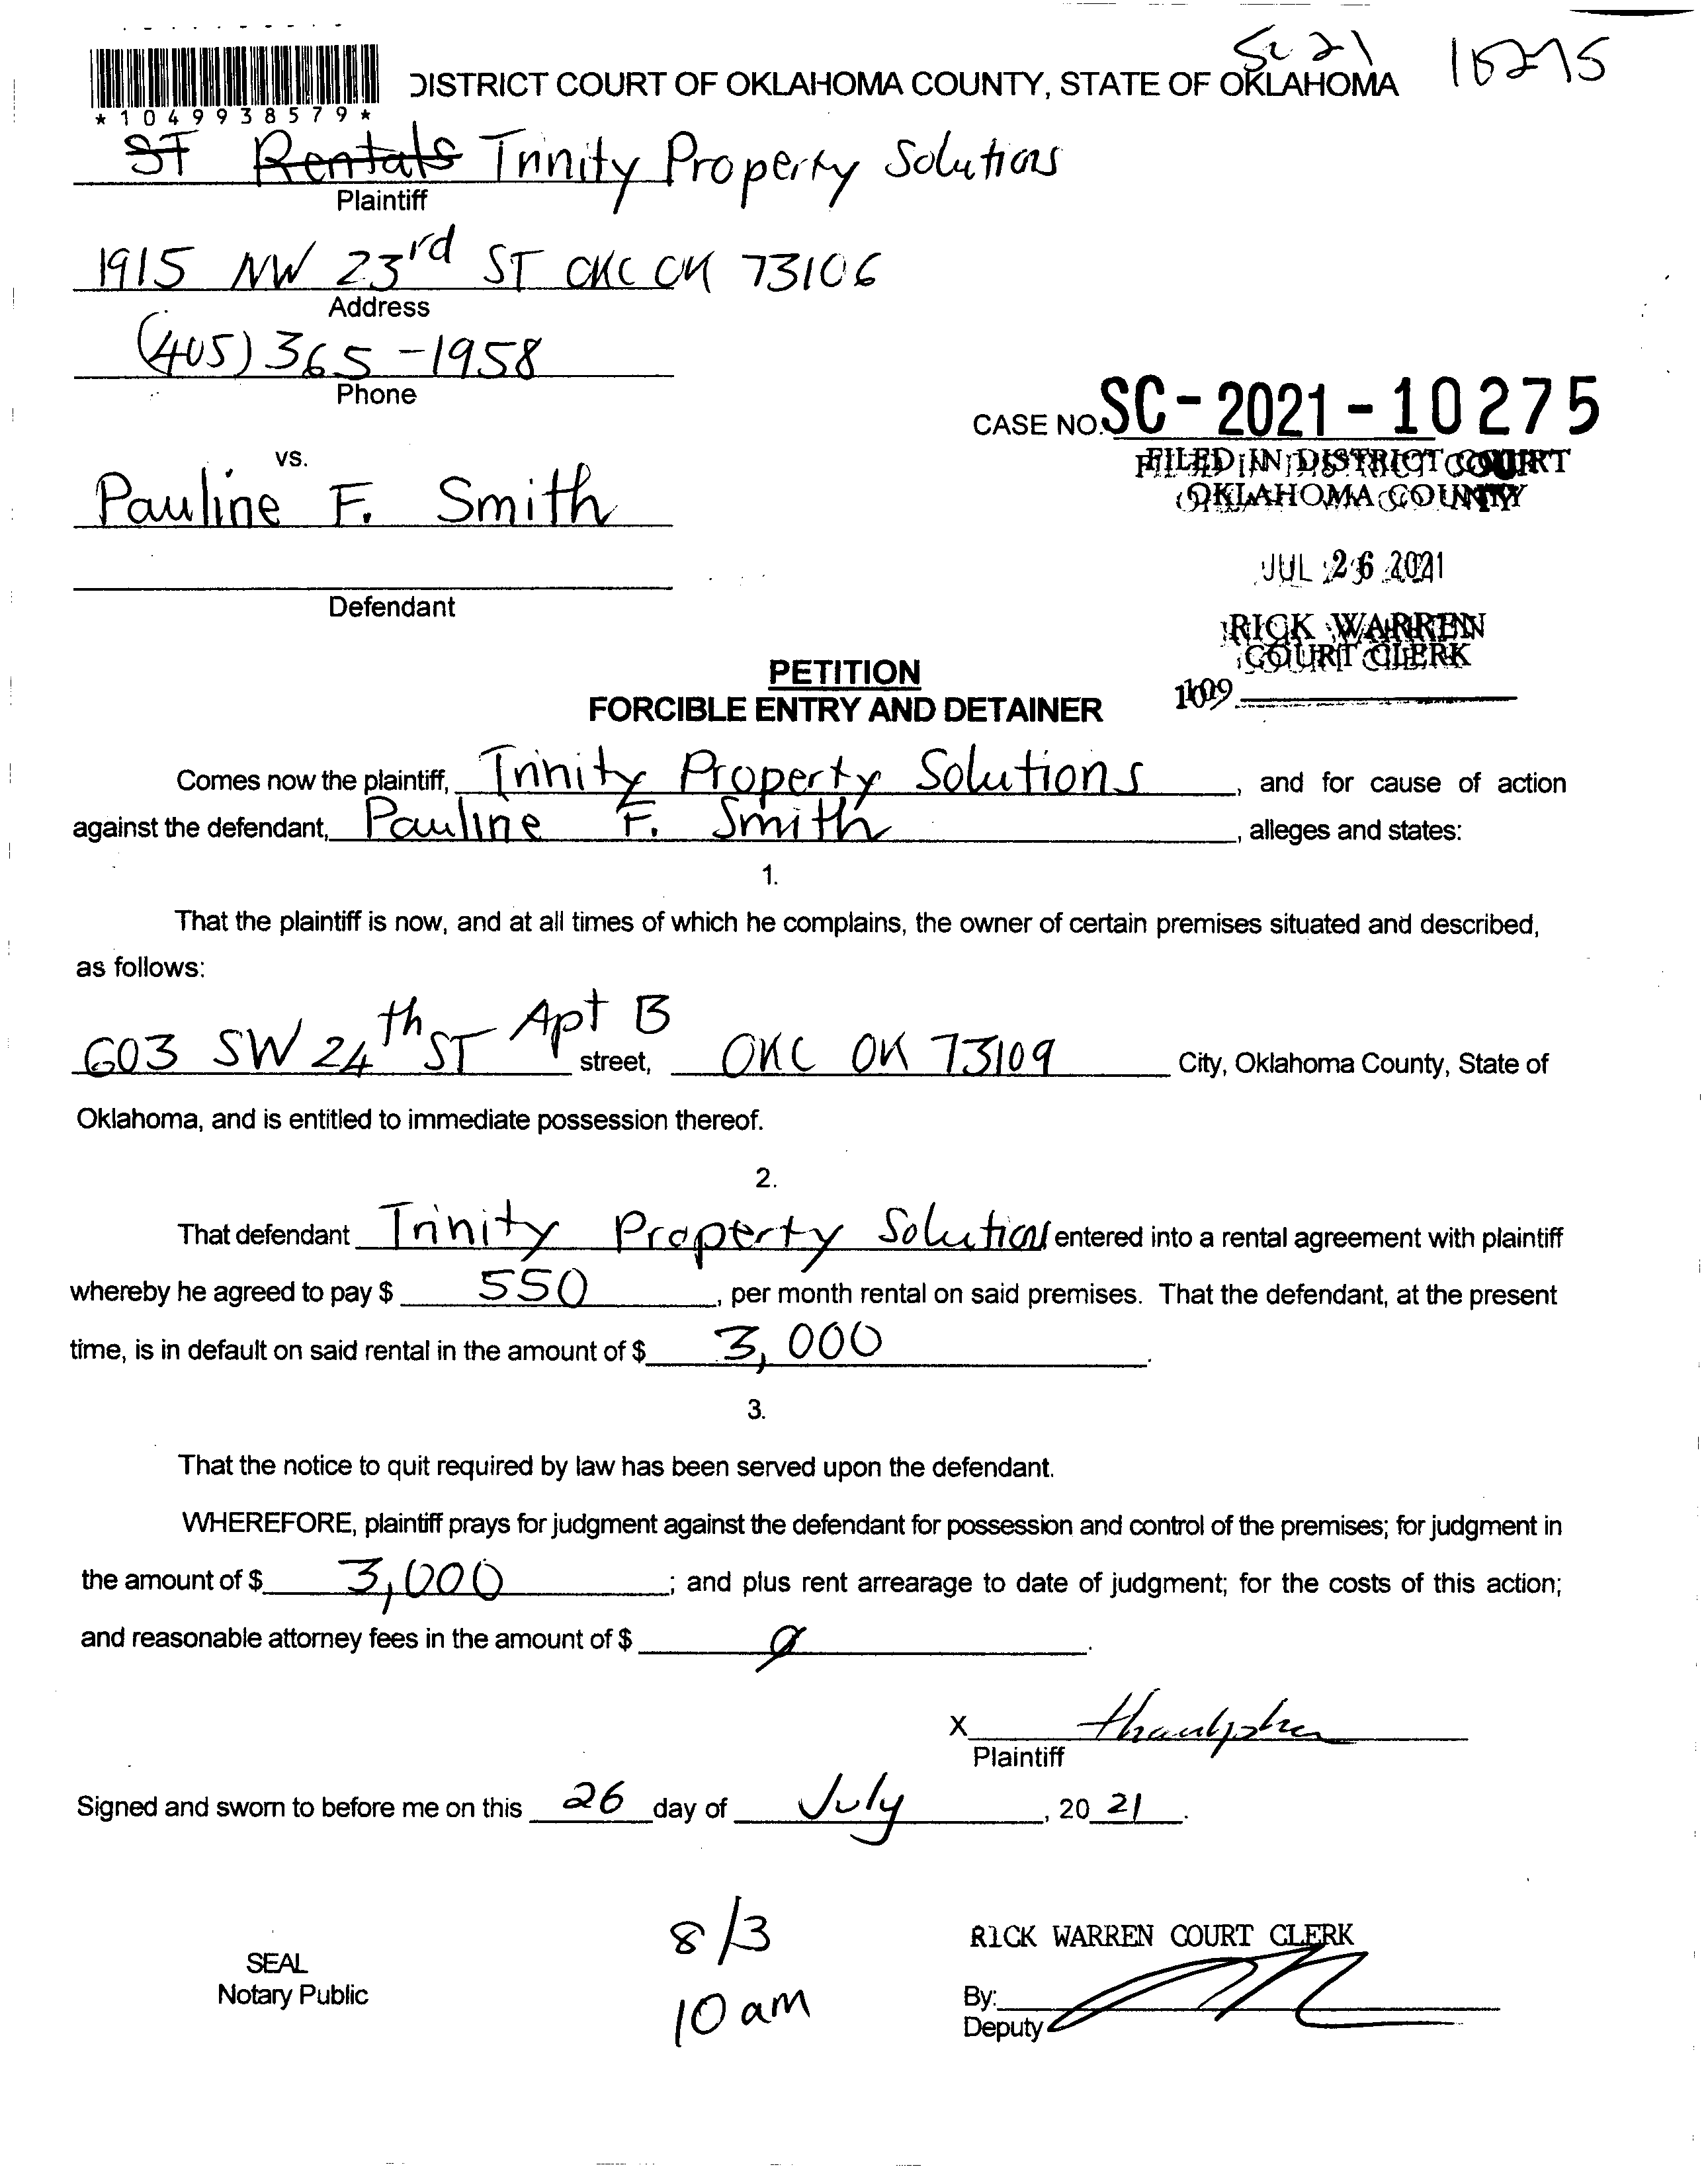 SC 21 10275
DISTRICT COURT OF OKLAHOMA COUNTY, STATE OF OKLAHOMA
* 1 0 4 9 9 3 8 5 7 9 *
ST Rentals Trinity Property Solutions
Plaintiff
1915 NW 23rd ST OKC OK 73106
Address
(405) 365-1958
Phone
CASE NO. SC-2021-10275
FILED IN DISTRICT COURT
OKLAHOMA COUNTY
vs.
Pauline F. Smith
JUL 26 2021
Defendant
RICK WARREN
COURT CLERK
109
PETITION
FORCIBLE ENTRY AND DETAINER
Comes now the plaintiff, Trinity Property Solutions, and for cause of action
against the defendant, Pauline F. Smith, alleges and states:
1.
That the plaintiff is now, and at all times of which he complains, the owner of certain premises situated and described,
as follows:
603 SW 24th ST Apt B street, OKC OK 73109 City, Oklahoma County, State of
Oklahoma, and is entitled to immediate possession thereof.
2.
That defendant Trinity Property Solutions entered into a rental agreement with plaintiff
whereby he agreed to pay $ 550, per month rental on said premises. That the defendant, at the present
time, is in default on said rental in the amount of $ 3,000.
3.
That the notice to quit required by law has been served upon the defendant.
WHEREFORE, plaintiff prays for judgment against the defendant for possession and control of the premises; for judgment in
the amount of $ 3,000; and plus rent arrearage to date of judgment; for the costs of this action;
and reasonable attorney fees in the amount of $ 0.
X
Plaintiff
Signed and sworn to before me on this 26 day of July, 20 21.
8/3
10 am
SEAL
Notary Public
RICK WARREN COURT CLERK
By:
Deputy